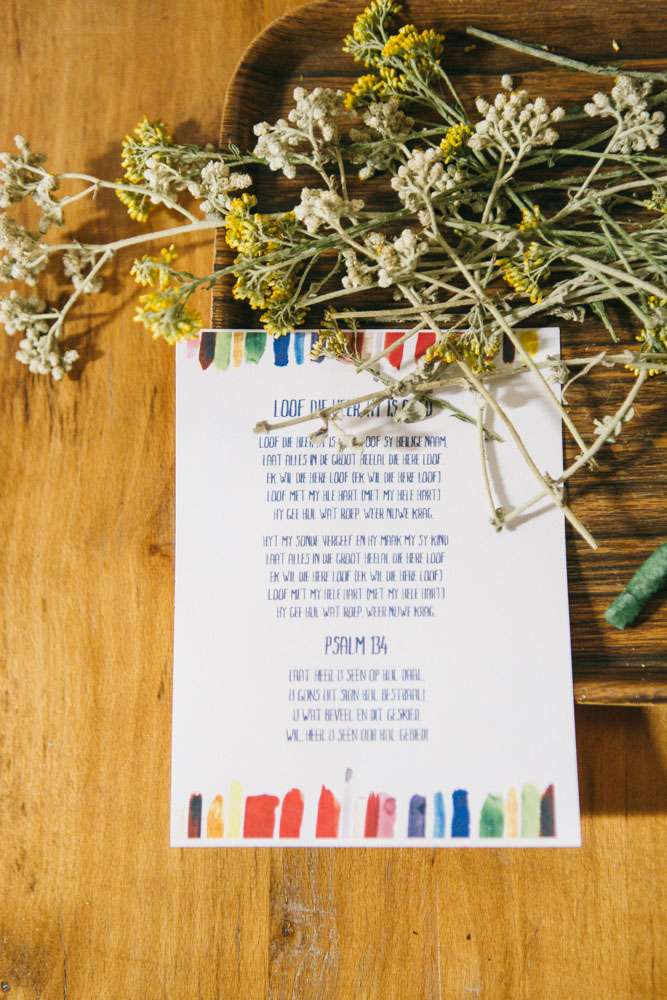 LOOF DIE HEER, HY IS GOED
LOOF DIE HEER HY IS LOOF SY HEILIGE NAAM,
LAAT ALLES IN DIE GROOT HEELAL DIE HERE LOOF.
EK WIL DIE HERE LOOF (EK WIL DIE HERE LOOF)
LOOF MET MY HELE HART (MET MY HELE HART)
HY GEE HUL WAT ROEP, WEER NUWE KRAG.
HY'T MY SONDE VERGEEF EN HY MAAK MY SY KIND
LAAT ALLES IN DIE GROOT HEELAL DIE HERE LOOF
EK WIL DIE HERE LOOF (EK WIL DIE HERE LOOF)
LOOF MET MY HELE HART (MET MY HELE HART)
HY GEE HUL WAT ROEP, WEER NUWE KRAG.
PSALM 134
LAAT, HEER, U SEËN OP HUL DAAL,
U GUNS UIT SION HUL BESTRAAL!
U WAT BEVEEL EN DIT GESKIED,
WIL, HEER, U SEËN OOR HUL GEBIED!